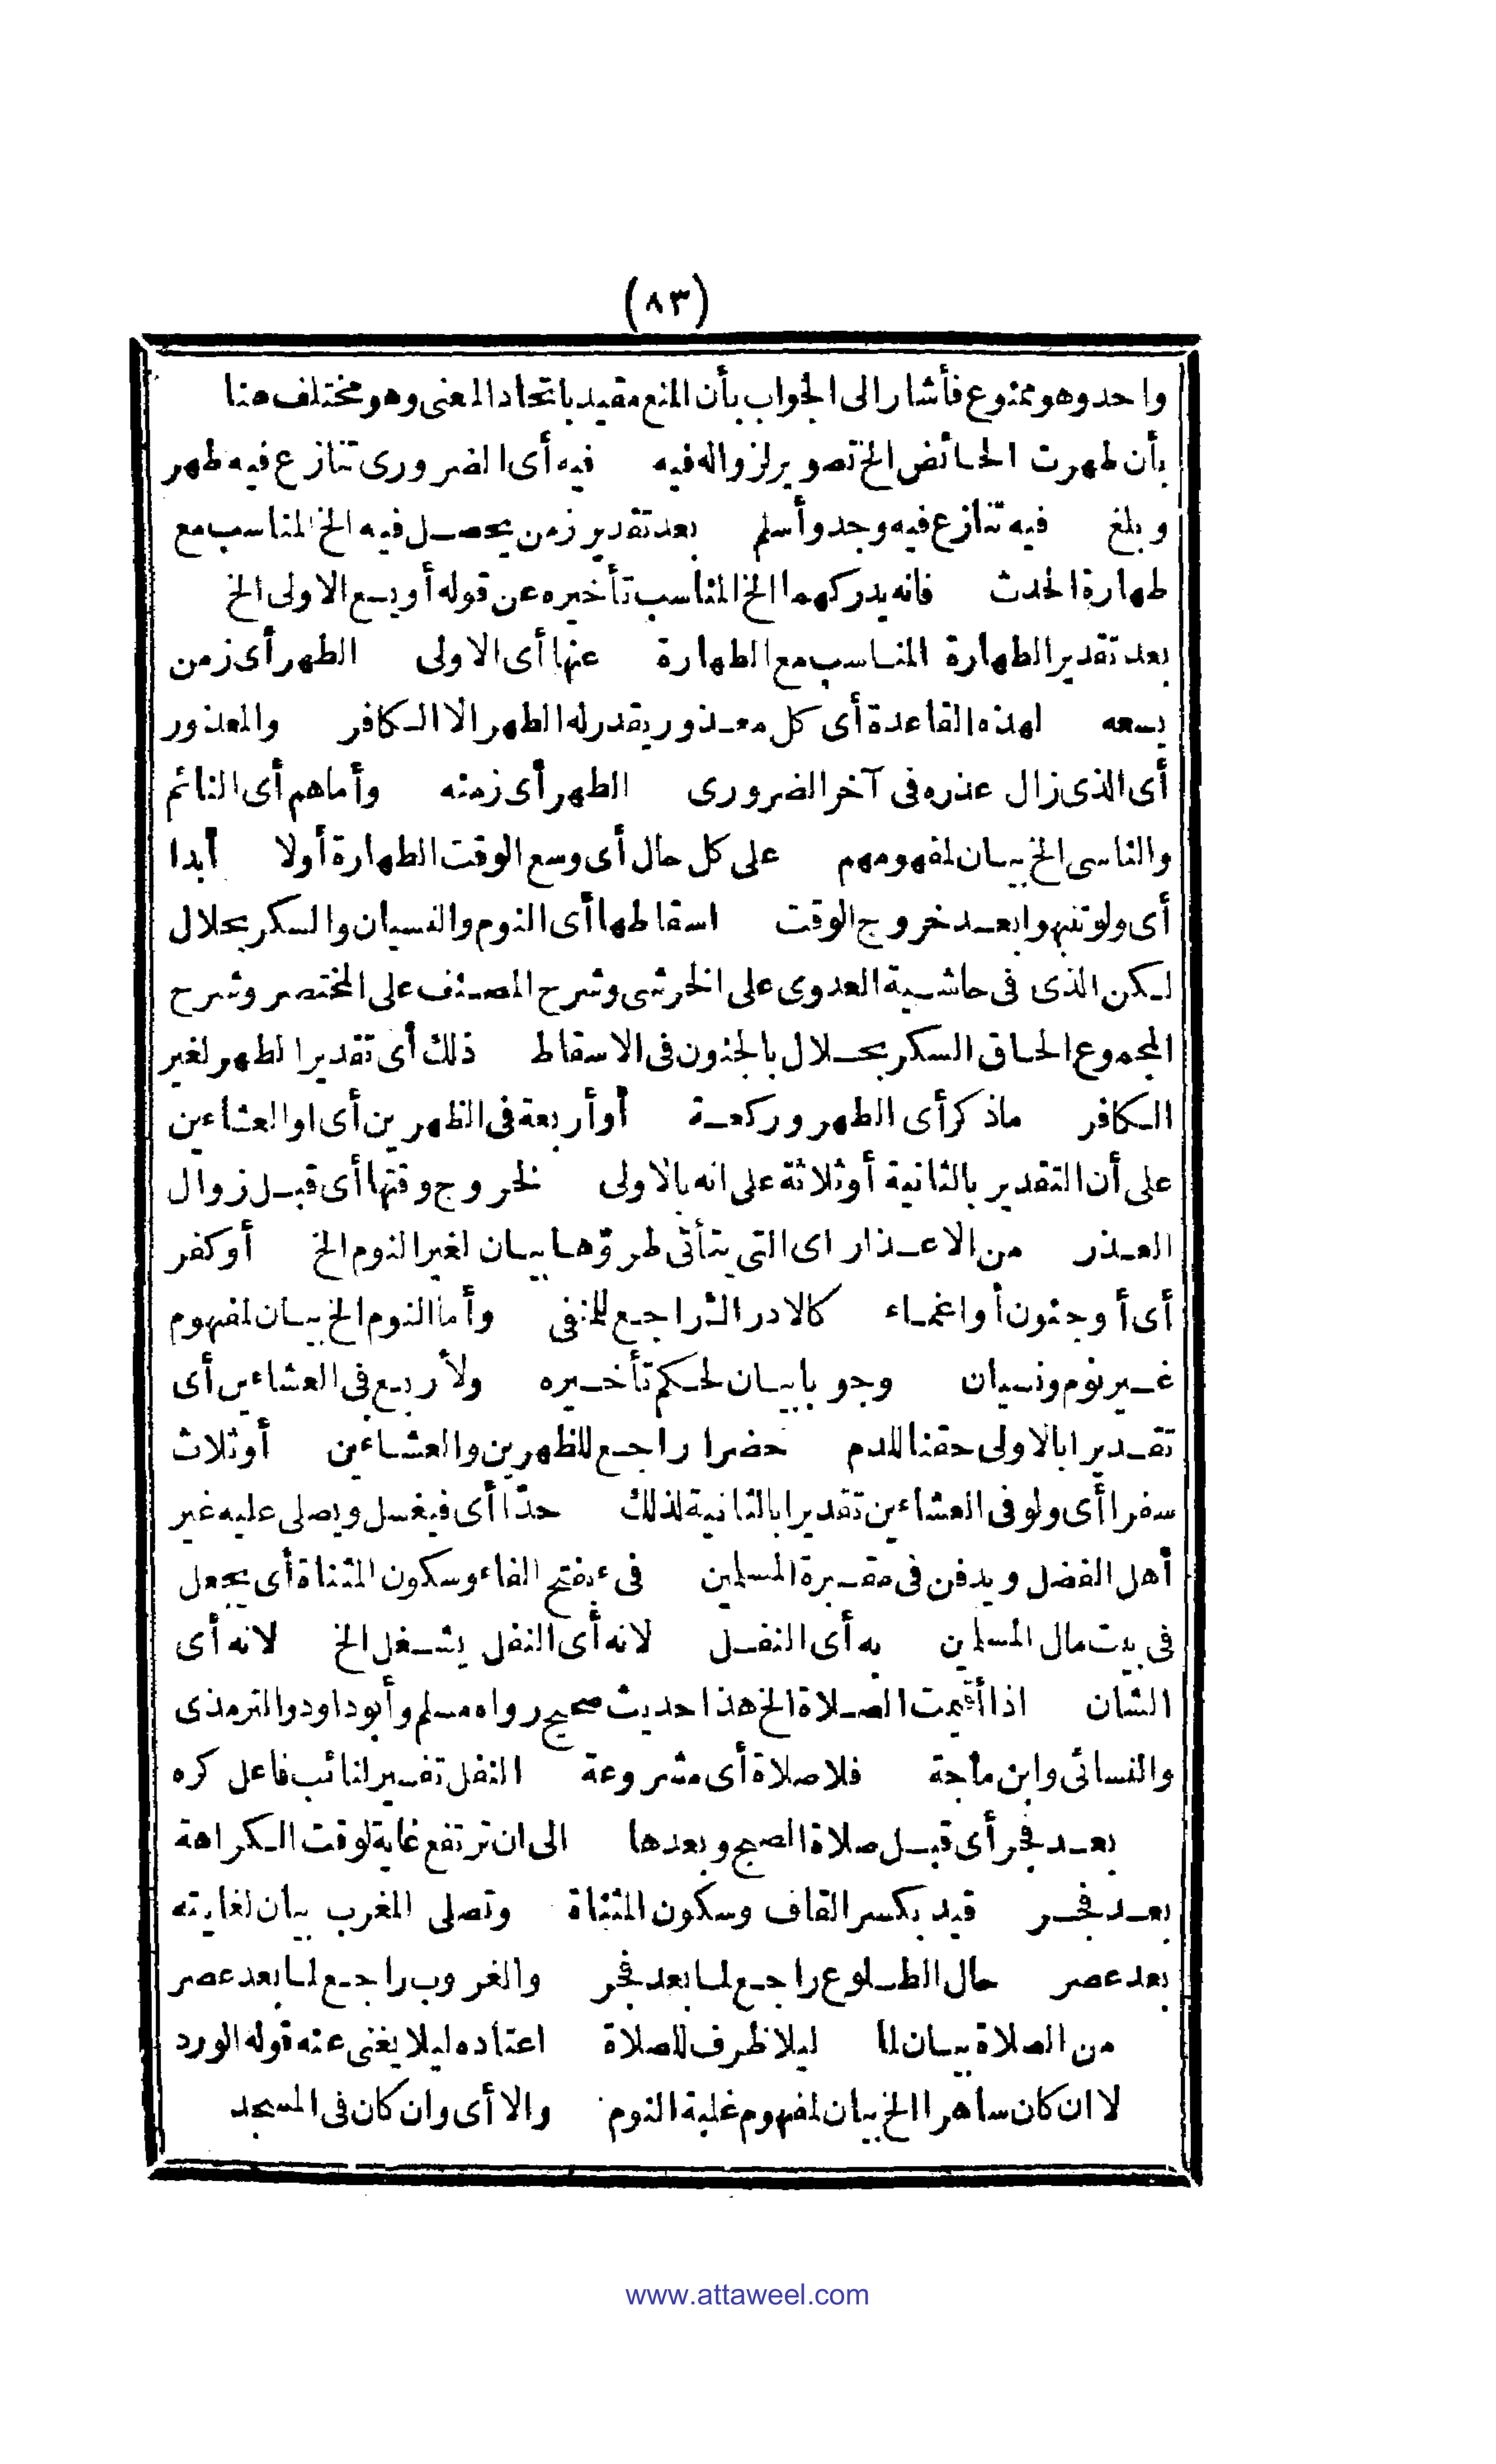 (٨٣)
واحد وهو ممنوع فأشار الى الجواب بأن المنع مقيد باتحاد المعنى وهو مختلف هنا
بأن طهرت الحائض الخ تصوير لزواله فيه فيه أى الضرورى تنازع فيه طهر
وبلغ فيه تنازع فيه وجد وأسلم بعد تقدير زمن يحصل فيه الخ المناسب مع
طهارة الحدث فانه يدركهما الخ المناسب تأخيره عن قوله أويسع الاولى الخ
بعد تقدير الطهارة المناسب مع الطهارة عنها أى الاولى الطهر أى زمن
يسعه لهذه القاعدة أى كل معذور يقدر له الطهر الا الكافر والمعذور
أى الذى زال عذره فى آخر الضرورى الطهر أى زمنه وأما هم أى النائم
والناسى الخ بيان لمفهومهم على كل حال أى وسع الوقت الطهارة أولا أبدا
أى ولو تنبهوا بعد خروج الوقت اسقاطها أى النوم والنسيان والسكر بحلال
لكن الذى فى حاشية العدوى على الخرشى وشرح المصنف على المختصر وشرح
المجموع الحاق السكر بحلال بالجنون فى الاسقاط ذلك أى تقدير الطهر لغير
الكافر ماذكر أى الطهر وركعة أو أربعة فى الظهرين أى او العشاءين
على أن التقدير بالثانية أوثلاثة على انه بالاولى لخروج وقتها أى قبل زوال
العذر من الاعذار اى التى يتأتى طروّها بيان لغير النوم الخ أو كفر
أى أو جنون أو اغماء كالادراك راجع للمنفى وأما النوم الخ بيان لمفهوم
غير نوم ونسيان وجوبا بيان لحكم تأخيره ولأربع فى العشاءين أى
تقديرا بالاولى حقنا للدم حضرا راجع للظهرين والعشاءين أوثلاث
سفرا أى ولو فى العشاءين تقديرا بالثانية لذلك حدّا أى فيغسل ويصلى عليه غير
أهل الفضل ويدفن فى مقبرة المسلمين فىء بفتح الفاء وسكون المثناة أى يجعل
فى بيت مال المسلمين به أى النفل لانه أى النفل يشغل الخ لانه أى
الشان اذا أقيمت الصلاة الخ هذا حديث صحيح رواه مسلم وأبو داود والترمذى
والنسائى وابن ماجة فلا صلاة أى مشروعة النفل تفسير لنائب فاعل كره
بعد فجر أى قبل صلاة الصبح وبعدها الى ان ترتفع غاية لوقت الكراهة
بعد فجر قيد بكسر القاف وسكون المثناة وتصلى المغرب بيان لغايته
بعد عصر حال الطلوع راجع لما بعد فجر والغروب راجع لما بعد عصر
من الصلاة بيان لما ليلا ظرف للصلاة اعتاده ليلا يغنى عنه قوله الورد
لا ان كان ساهرا الخ بيان لمفهوم غلبة النوم والا أى وان كان فى المسجد
www.attaweel.com